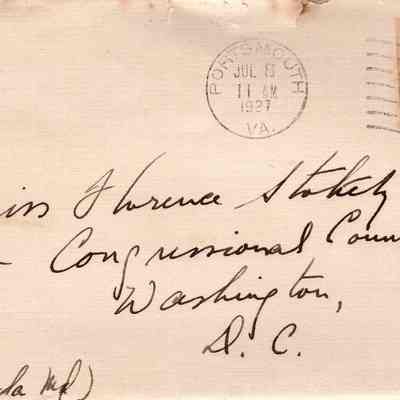 PORTSMOUTH
JUL 8
11 AM
1927
VA.
iss Florence Stokely
Congressional Coun
Washington,
D. C.
da Md)